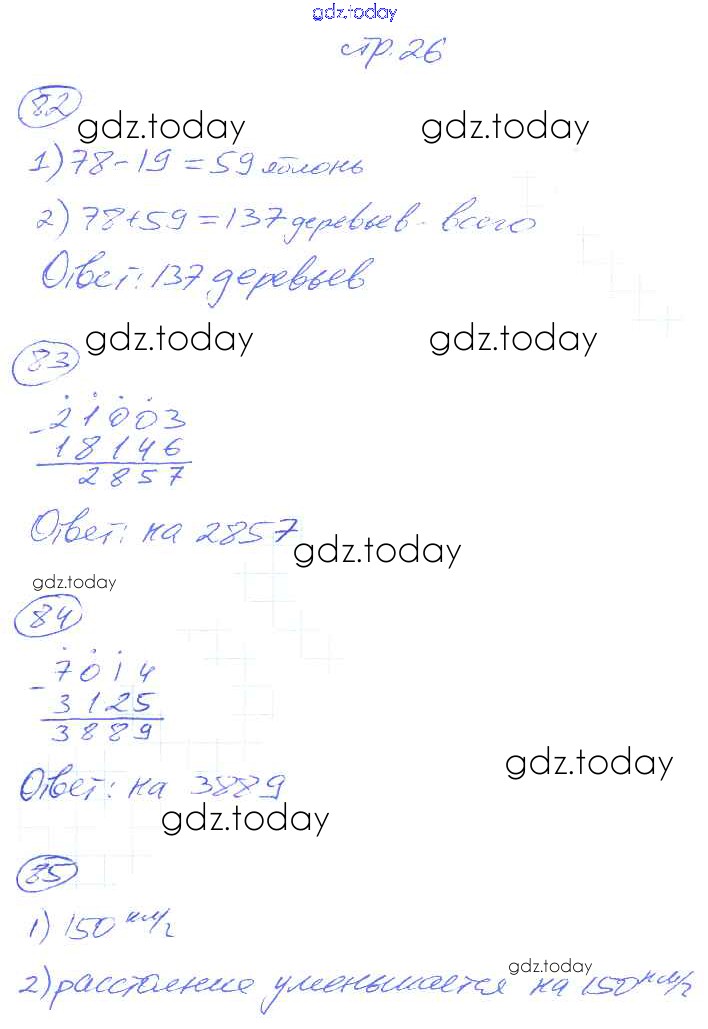 gdz.today
стр. 26
82
gdz.today gdz.today
1) 78 - 19 = 59 яблонь
2) 78 + 59 = 137 деревьев - всего
Ответ: 137 деревьев
gdz.today gdz.today
83
21003
- 18146
2857
Ответ: на 2857
gdz.today
gdz.today
84
7014
- 3125
3889
gdz.today
Ответ: на 3889
gdz.today
85
1) 150 км/г
gdz.today
2) расстояние уменьшается на 150 км/г